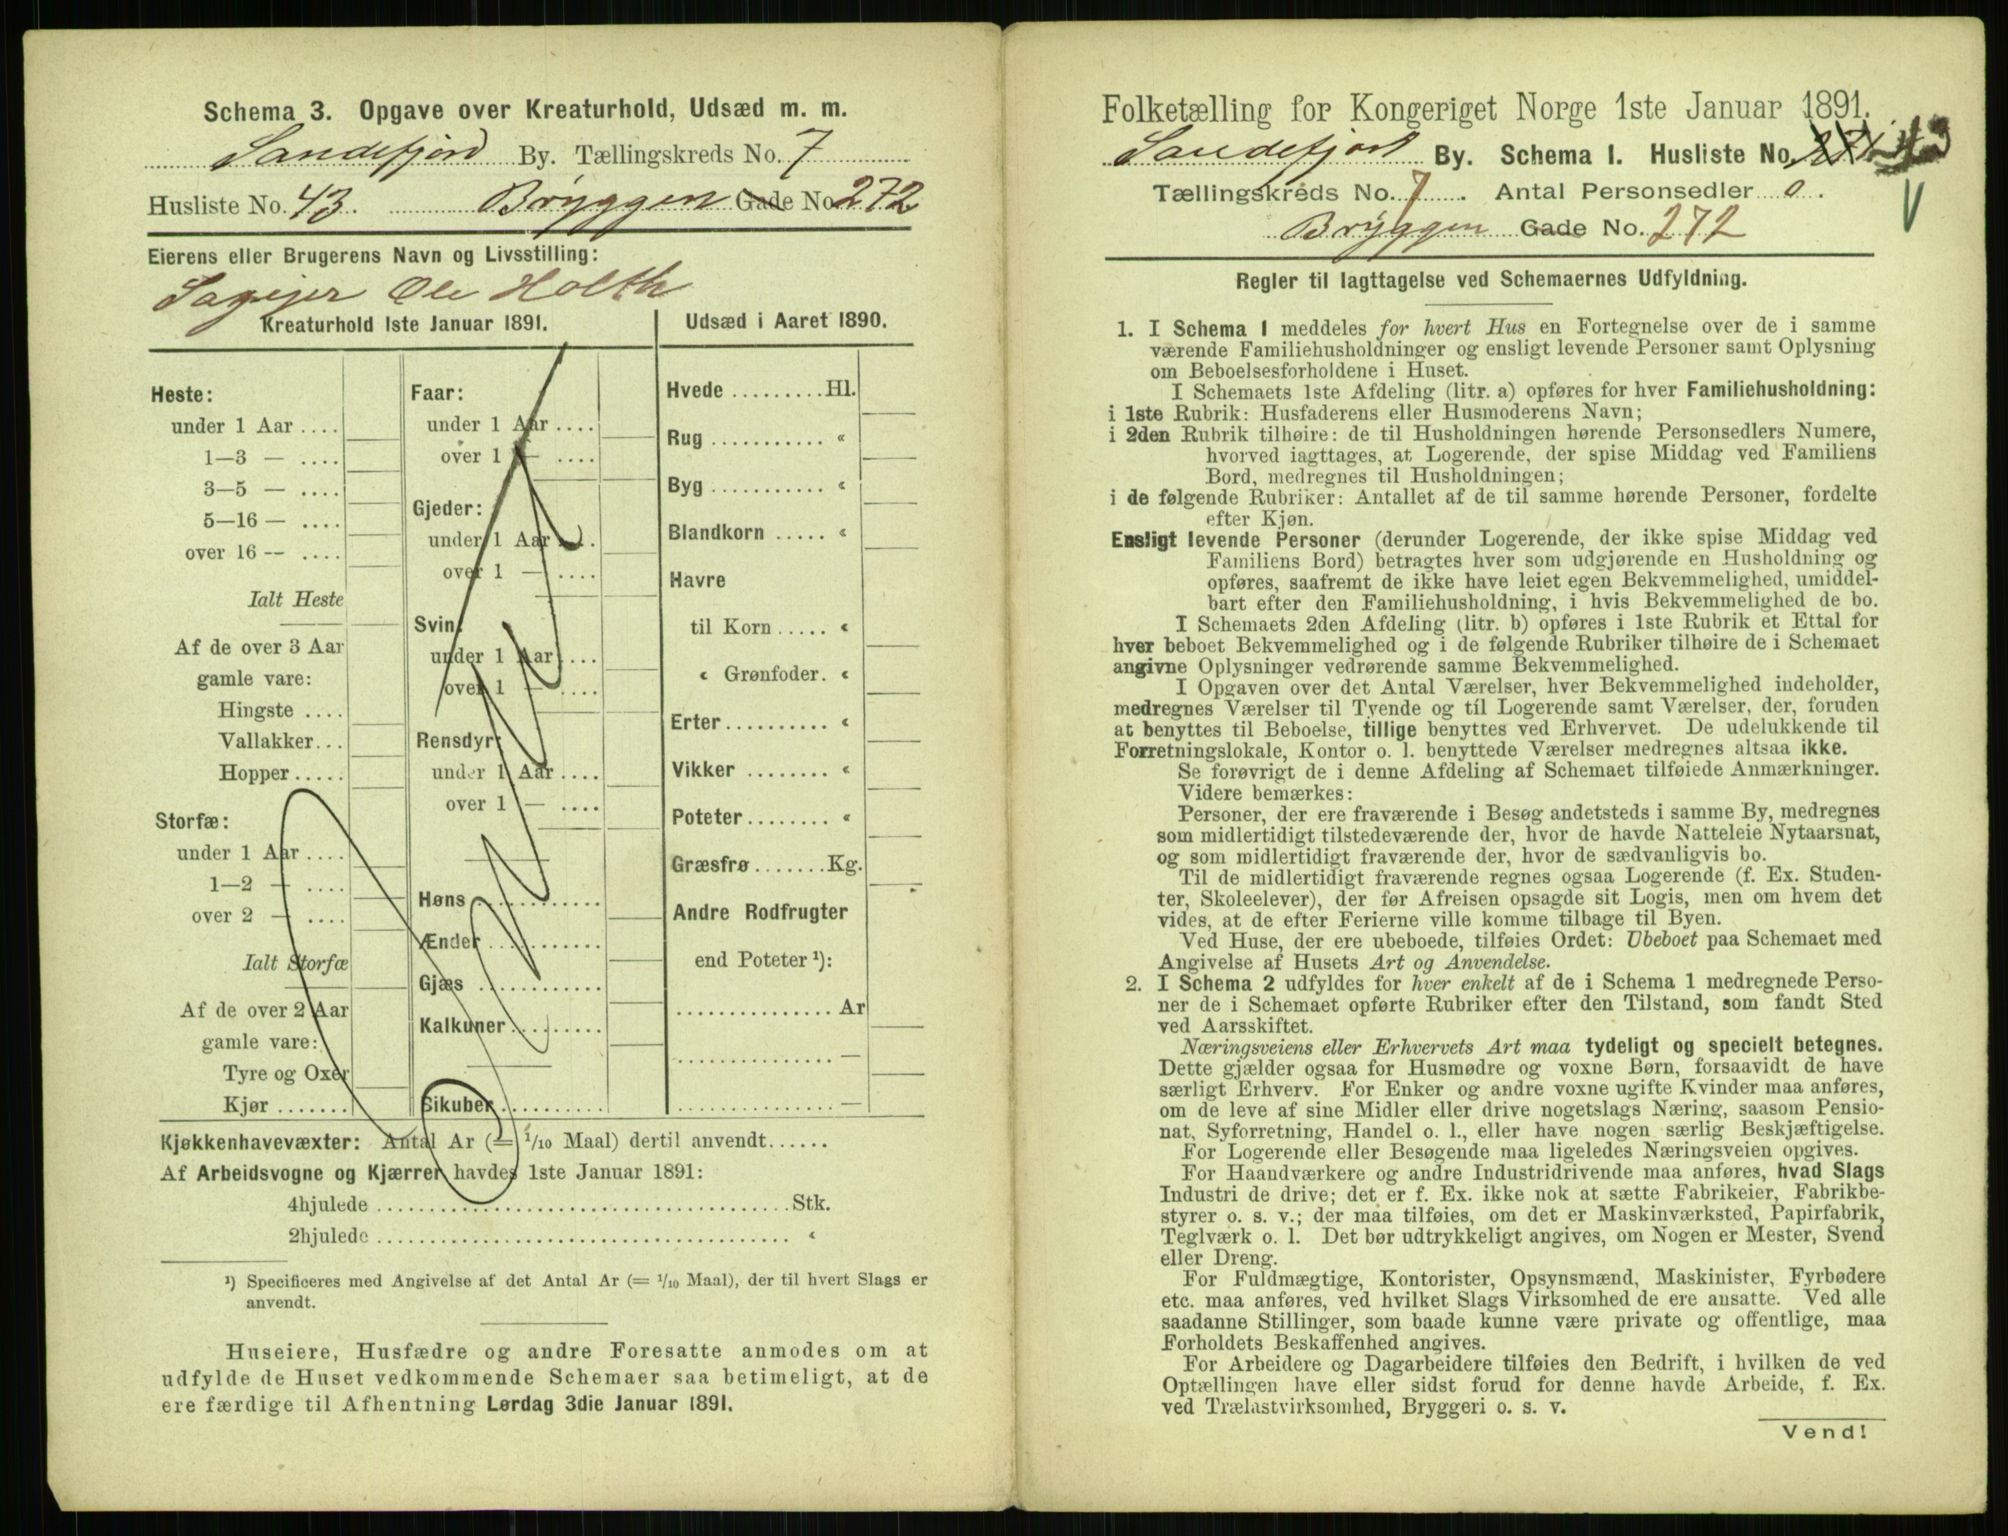 Schema 3. Opgave over Kreaturhold, Udsæd m. m.
Sandefjord By. Tællingskreds No. 7
Husliste No. 43. Bryggen Gade No 272
Eierens eller Brugerens Navn og Livsstilling:
Sageier Ole Holth
Kreaturhold 1ste Januar 1891.
Heste:
under 1 Aar ....
1—3 — ....
3—5 — ....
5—16 — ....
over 16 -- ....
Ialt Heste
Af de over 3 Aar
gamle vare:
Hingste ....
Vallakker...
Hopper.....
Storfæ:
under 1 Aar ....
1—2 — ....
over 2 — ....
Ialt Storfæ
Af de over 2 Aar
gamle vare:
Tyre og Oxer
Kjør .......
Faar:
under 1 Aar ....
over 1 — ....
Gjeder:
under 1 Aar ....
over 1 — ....
Svin:
under 1 Aar ....
over 1 — ....
Rensdyr:
under 1 Aar ....
over 1 — ....
Høns ...........
Ænder ..........
Gjæs ...........
Kalkuner.........
Bikuber..........
Udsæd i Aaret 1890.
Hvede .........Hl.
Rug ........... «
Byg ........... «
Blandkorn ..... «
Havre
til Korn ..... «
« Grønfoder. «
Erter.......... «
Vikker ........ «
Poteter........ «
Græsfrø.......Kg.
Andre Rodfrugter
end Poteter ¹):
............... Ar
............... —
............... —
Kjøkkenhavevæxter: Antal Ar (= 1/10 Maal) dertil anvendt......
Af Arbeidsvogne og Kjærrer havdes 1ste Januar 1891:
4hjulede ....................................Stk.
2hjulede .................................... «
¹) Specificeres med Angivelse af det Antal Ar (= 1/10 Maal), der til hvert Slags er
anvendt.
Huseiere, Husfædre og andre Foresatte anmodes om at
udfylde de Huset vedkommende Schemaer saa betimeligt, at de
ere færdige til Afhentning Lørdag 3die Januar 1891.
Folketælling for Kongeriget Norge 1ste Januar 1891.
Sandefjord By. Schema 1. Husliste No. 43
Tællingskreds No. 7. Antal Personsedler 0.
Bryggen Gade No. 272
Regler til Iagttagelse ved Schemaernes Udfyldning.
1. I Schema 1 meddeles for hvert Hus en Fortegnelse over de i samme
værende Familiehusholdninger og ensligt levende Personer samt Oplysning
om Beboelsesforholdene i Huset.
I Schemaets 1ste Afdeling (litr. a) opføres for hver Familiehusholdning:
i 1ste Rubrik: Husfaderens eller Husmoderens Navn;
i 2den Rubrik tilhøire: de til Husholdningen hørende Personsedlers Numere,
hvorved iagttages, at Logerende, der spise Middag ved Familiens
Bord, medregnes til Husholdningen;
i de følgende Rubriker: Antallet af de til samme hørende Personer, fordelte
efter Kjøn.
Ensligt levende Personer (derunder Logerende, der ikke spise Middag ved
Familiens Bord) betragtes hver som udgjørende en Husholdning og
opføres, saafremt de ikke have leiet egen Bekvemmelighed, umiddel-
bart efter den Familiehusholdning, i hvis Bekvemmelighed de bo.
I Schemaets 2den Afdeling (litr. b) opføres i 1ste Rubrik et Ettal for
hver beboet Bekvemmelighed og i de følgende Rubriker tilhøire de i Schemaet
angivne Oplysninger vedrørende samme Bekvemmelighed.
I Opgaven over det Antal Værelser, hver Bekvemmelighed indeholder,
medregnes Værelser til Tyende og til Logerende samt Værelser, der, foruden
at benyttes til Beboelse, tillige benyttes ved Erhvervet. De udelukkende til
Forretningslokale, Kontor o. l. benyttede Værelser medregnes altsaa ikke.
Se forøvrigt de i denne Afdeling af Schemaet tilføiede Anmærkninger.
Videre bemærkes:
Personer, der ere fraværende i Besøg andetsteds i samme By, medregnes
som midlertidigt tilstedeværende der, hvor de havde Natteleie Nytaarsnat,
og som midlertidigt fraværende der, hvor de sædvanligvis bo.
Til de midlertidigt fraværende regnes ogsaa Logerende (f. Ex. Studen-
ter, Skoleelever), der før Afreisen opsagde sit Logis, men om hvem det
vides, at de efter Ferierne ville komme tilbage til Byen.
Ved Huse, der ere ubeboede, tilføies Ordet: Ubeboet paa Schemaet med
Angivelse af Husets Art og Anvendelse.
2. I Schema 2 udfyldes for hver enkelt af de i Schema 1 medregnede Perso-
ner de i Schemaet opførte Rubriker efter den Tilstand, som fandt Sted
ved Aarsskiftet.
Næringsveiens eller Erhvervets Art maa tydeligt og specielt betegnes.
Dette gjælder ogsaa for Husmødre og voxne Børn, forsaavidt de have
særligt Erhverv. For Enker og andre voxne ugifte Kvinder maa anføres,
om de leve af sine Midler eller drive nogetslags Næring, saasom Pensio-
nat, Syforretning, Handel o. l., eller have nogen særlig Beskjæftigelse.
For Logerende eller Besøgende maa ligeledes Næringsveien opgives.
For Haandværkere og andre Industridrivende maa anføres, hvad Slags
Industri de drive; det er f. Ex. ikke nok at sætte Fabrikeier, Fabrikbe-
styrer o. s. v.; der maa tilføies, om det er Maskinværksted, Papirfabrik,
Teglværk o. l. Det bør udtrykkeligt angives, om Nogen er Mester, Svend
eller Dreng.
For Fuldmægtige, Kontorister, Opsynsmænd, Maskinister, Fyrbødere
etc. maa anføres, ved hvilket Slags Virksomhed de ere ansatte. Ved alle
saadanne Stillinger, som baade kunne være private og offentlige, maa
Forholdets Beskaffenhed angives.
For Arbeidere og Dagarbeidere tilføies den Bedrift, i hvilken de ved
Optællingen have eller sidst forud for denne havde Arbeide, f. Ex.
ved Trælastvirksomhed, Bryggeri o. s. v.
Vend!